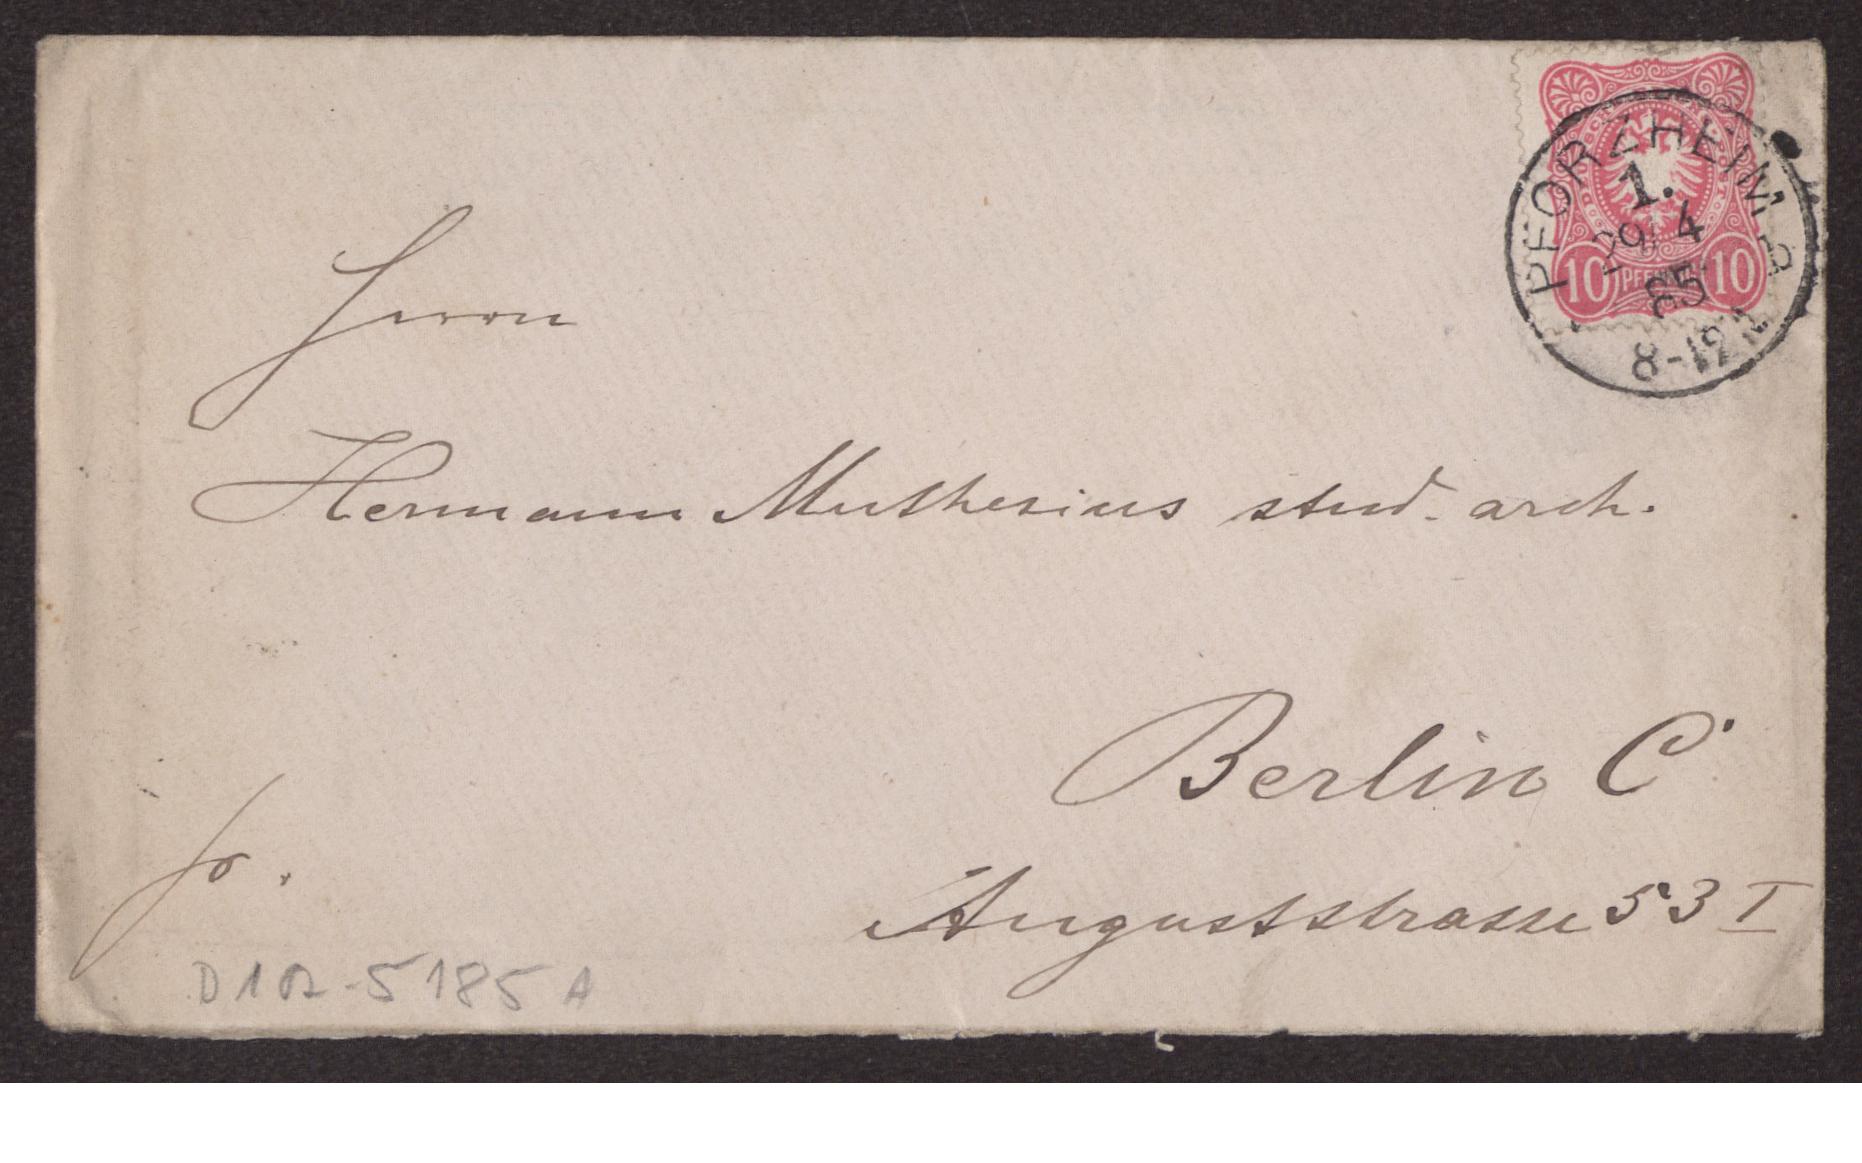 PFORZHEIM
1.
29 4
85
8-12
10 PFENNIG 10
Herrn
Hermann Muthesius stud. arch.
Berlin C
fr.
Auguststrasse 53 I
5185 A